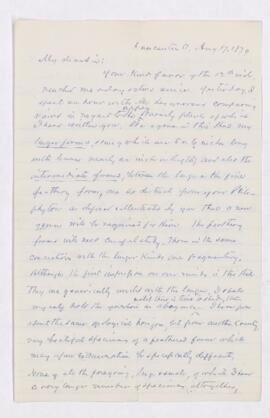 Lancaster O. Aug 17, 1879
My dear sir:
Your kind favor of the 12th inst.
reached me a day or two since. Yesterday, I
spent an hour with Mr. comparing
views in regard to the family plants of which
I have written you. We agree in this that my
larger forms, some of which are 5 to 6 inches long
with leaves nearly an inch in length, and also the
intermediate forms, between the large & the fine
feathery forms, are so distinct from your
as defined & illustrated by you that a new
genus will be required for them. The feathery
forms will need careful study. Them in the same
connection with the larger kinds are fragmentary,
although the first impression on our minds is that
They are generically united with the larger, I
hold the question in abeyance. I have from
about the same geological horizon, but from another county,
very beautiful specimens of a feathered form which
may upon examination be specifically different.
None of all the foregoing, large & small, of which I have
a very large number of specimens, altogether,